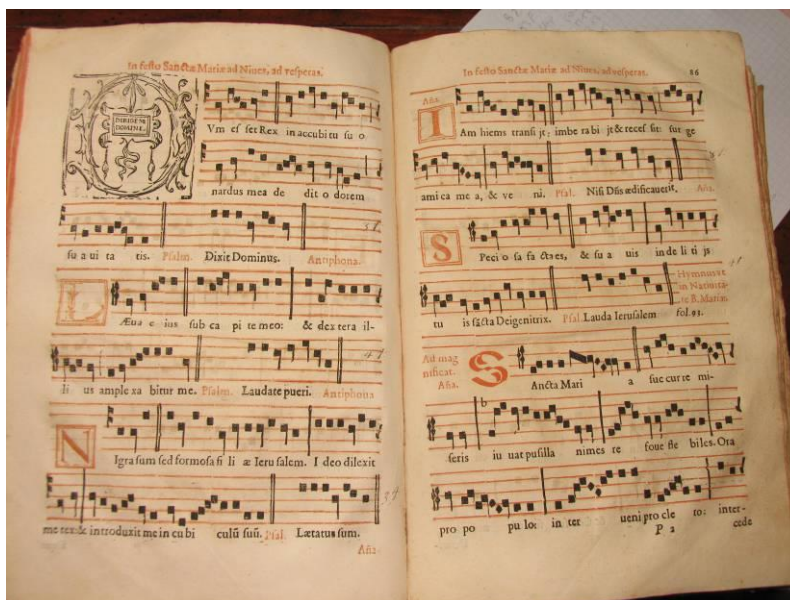 In festo Sanctæ Mariæ ad Niues, ad vesperas.
DIRIGE ME
DOMINE.
Vm es set Rex in accubitu su o
nardus mea de dit o dorem
su a ui ta tis. Psalm. Dixit Dominus. Antiphona.
L Æua e ius sub ca pi te meo: & dex tera il-
li us ample xa bitur me. Psalm. Laudate pueri. Antiphona
N Igra sum sed formosa fi li æ Ieru salem. I deo dilexit
me rex & introduxit me in cu bi culũ suũ. Psal. Lætatus sum.
Aña
In festo Sanctæ Mariæ ad Niues, ad vesperas. 86
Aña.
I Am hiems transi jt: imbe r abi jt & reces sit: sur ge
ami ca me a, & ve ni. Psal. Nisi Dñs ædificauerit. Aña.
S Peci o sa fa cta es, & su a uis in de li ti js
tu is sãcta Dei genitrix. Psal. Lauda Ierusalem
Hymnus vt
in Natiuita-
te B. Mariæ.
fol. 93.
Ad mag
nificat.
Aña.
S Ancta Mari a suc cur re mi-
seris iu uat pusilla nimes re foue fle biles. Ora
pro po pu lo: in ter ueni pro cle ro: inter-
P 2 cede